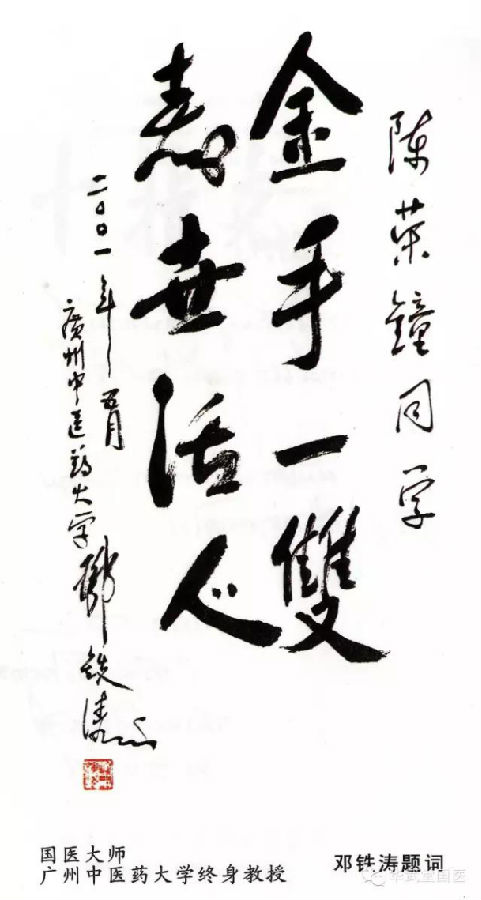 陈荣鐘同学
金手一雙
寿世活人
二〇〇一年五月
廣州中医药大学 鄧铁涛
国医大师
广州中医药大学终身教授
邓铁涛题词